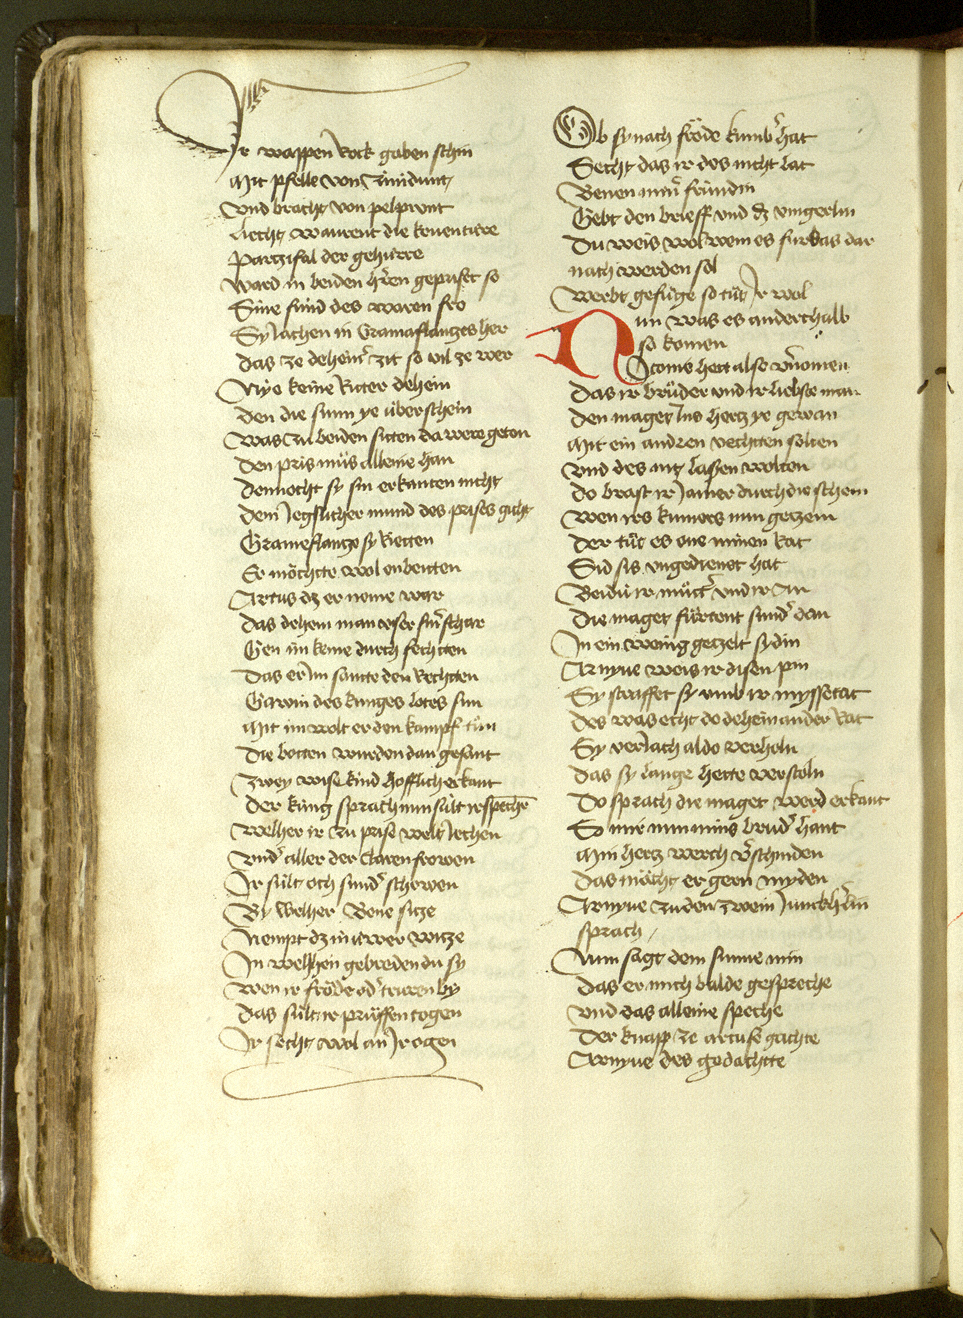 Jr wappen Rock gaben schin
Mit pfelle von Zinidunt
Vnd bracht von pelpiunt
liecht waurent die kouentúre
Partzifal der gehúrre
Ward in beiden h'ren gepriset so
Sine fúnd des waren fro
Sy iachen in Gramaflantzes her
Das ze dehein' zit so vil ze wer
Nÿe keine Ritter dehein
Den die sunn ye úberschein
Was zu beiden sitten da were geton
Den pris mús alleine han
Dennocht sy sin erkanten nicht
Dem Jegklicher mund des prises gicht
Grameflantze sy Rietten
Er möchtte wol enbietten
Artus dz er neme war
Das dehein man usser sin' schar
Gen im keme durch fechtten
Das er Im santte den Rechtten
Gawin des kunges lotes sun
Mit im wolt er den kampf tůn
Die botten wurden dan gesant
Zwey wise kind hofflich erkant
Der kúng sprach nun súlt ir spechen
Welher ir zu prise welt iechen
Vnd' aller der claren frowen
Ir súlt och sund' schowen
By welher Bene sitze
Nempt dz in úwer witze
In welhen geberden du sy
Wen ir fröde od' truren by
Das súlt ir prúffen togen
Ir secht wol an Jr ogen
Ob sy nach fröde kumb' hat
Secht das ir des nicht lat
Benen min' fründin
Gebt den brieff vnd dz vingerlin
Du weis wol wem es furbas dar
nach werden sol
Werbt gefúge so tút Jr wol
Nun was es anderthalb
so komen
Itonie hett alse v'nomen
Das ir brúder vnd ir liebste man
Den maget Ins hertz ye gewan
Mit ein andren vechtten solten
Vnd des nit lassen wolten
Do brast ir Jamer durch die schem
Wen irs kumers nun getzem
Der tút es one minen Rat
Sid sis vngedienet hat
Beidu ir mútt' vnd ir An
Die maget fúrtent sund' dan
In ein wenig getzelt sydin
Arnyue weis ir disen pin
Sy straffet sy vmb ir myssetat
Des was echt do dehein ander Rat
Sy veriach al do verholn
Das sy lange hette verstoln
Do sprach die maget werd erkant
So mir nun mins brud' hant
Min hertz werch v'schinden
Das möcht er gern myden
Arnyue zu den zwein Junckh'lin
sprach
Nun sagt dem sunne min
Das er mich balde gespreche
Vnd das alleine speche
Der knapp ze artuse gachte
Arnyue des gedachtte